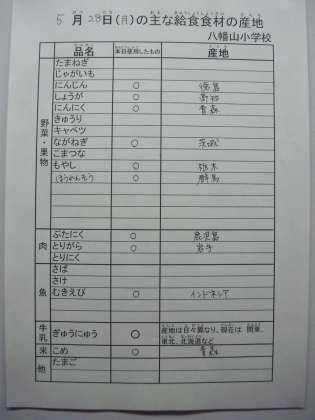 5月28日(月)の主な給食食材の産地
八幡山小学校
品名 本日使用したもの 産地
野菜・果物
たまねぎ
じゃがいも
にんじん ○ 徳島
しょうが ○ 高知
にんにく ○ 青森
きゅうり
キャベツ
ながねぎ ○ 茨城
こまつな
もやし ○ 栃木
ほうれんそう ○ 群馬
肉
ぶたにく ○ 鹿児島
とりがら ○ 岩手
とりにく
魚
さば
さけ
むきえび ○ インドネシア
牛乳 ぎゅうにゅう ○ 産地は日々異なり、現在は 関東、
東北、北海道など
米 こめ ○ 青森
他 たまご